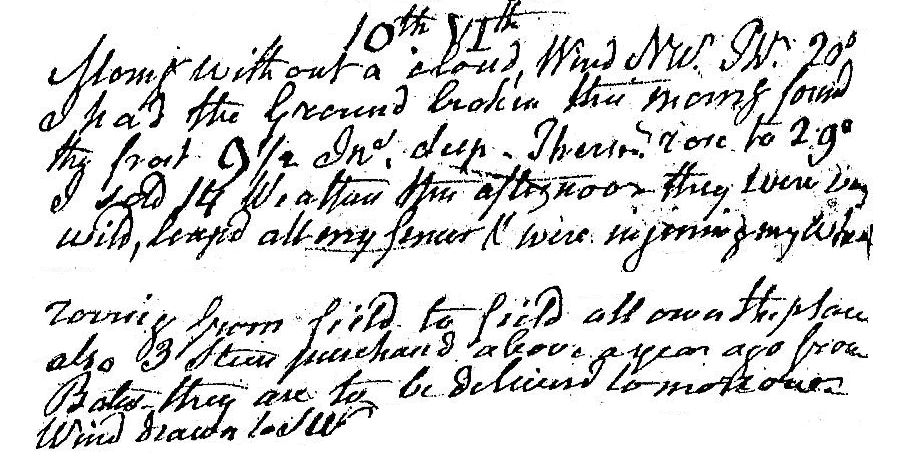 10th VIth
Morng without a cloud, Wind NW. Tr. 20°
I had the Ground broken this morng found
the frost 9 1/2 Ins. deep. Thermr. rose to 29°
I sold 14 Weathers this afternoon they were very
wild, leap'd all my fences & were injoring my Wheat
roving from field to field all over the place
also 3 Steers purchased above a year ago from
Bates they are to be deliverd tomorrow
Wind drawn to SW